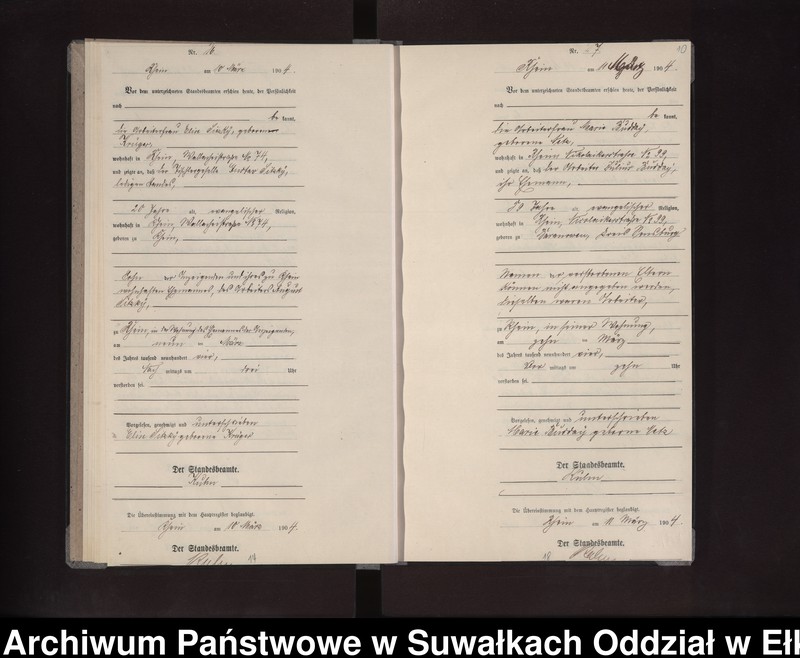 Nr. 26
Rhein am 10 März 1904.
Vor dem unterzeichneten Standesbeamten erschien heute, der Persönlichkeit
nach
be kannt,
die Arbeiterfrau Elise geborene
Krüger,
wohnhaft in Rhein, № 74,
und zeigte an, daß der Gustav
ledigen Standes,
20 Jahre alt, evangelischer Religion,
wohnhaft in Rhein, № 74,
geboren zu Rhein,
Sohn der Anzeigenden und ihres zu Rhein
wohnhaften Ehemannes, des Arbeiters August
zu Rhein, in der Wohnung des Ehemannes der Anzeigenden,
am neun ten März
des Jahres tausend neunhundert vier,
Nach mittags um drei Uhr
verstorben sei.
Vorgelesen, genehmigt und unterschrieben
Elise geborene Krüger
Der Standesbeamte.
Die Übereinstimmung mit dem Hauptregister beglaubigt.
Rhein am 10 März 1904.
Der Standesbeamte.
Nr. 27
10
Rhein am 11 März 1904.
Vor dem unterzeichneten Standesbeamten erschien heute, der Persönlichkeit
nach
be kannt,
die Arbeiterfrau Marie
geborene
wohnhaft in Rhein, Nikolaikerstraße № 99,
und zeigte an, daß der Arbeiter Julius
ihr Ehemann,
Jahre alt, evangelischer Religion,
wohnhaft in Rhein, Nikolaikerstraße № 99,
geboren zu Kreis Sensburg
Namen der verstorbenen Eltern
können nicht angegeben werden,
dieselben waren Arbeiter,
zu Rhein, in seiner Wohnung,
am zehn ten März
des Jahres tausend neunhundert vier,
Vor mittags um zehn Uhr
verstorben sei.
Vorgelesen, genehmigt und unterschrieben
Marie geborene
Der Standesbeamte.
Die Übereinstimmung mit dem Hauptregister beglaubigt.
Rhein am 11 März 1904.
Der Standesbeamte.
Archiwum Państwowe w Suwałkach Oddział w Ełk